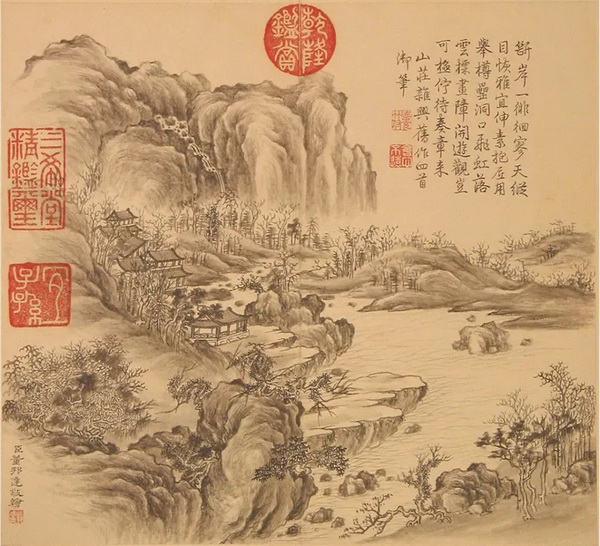 斷岸一徘徊寥天縱
目恢雅宜伸素抱底用
舉樽罍洞口飛虹落
雲標畫障開遊觀豈
可極佇待奏章來
山莊雜興舊作四首
御筆
乾隆
鑑賞
三希堂
精鑑璽
宜
子孫
臣董邦達敬繪